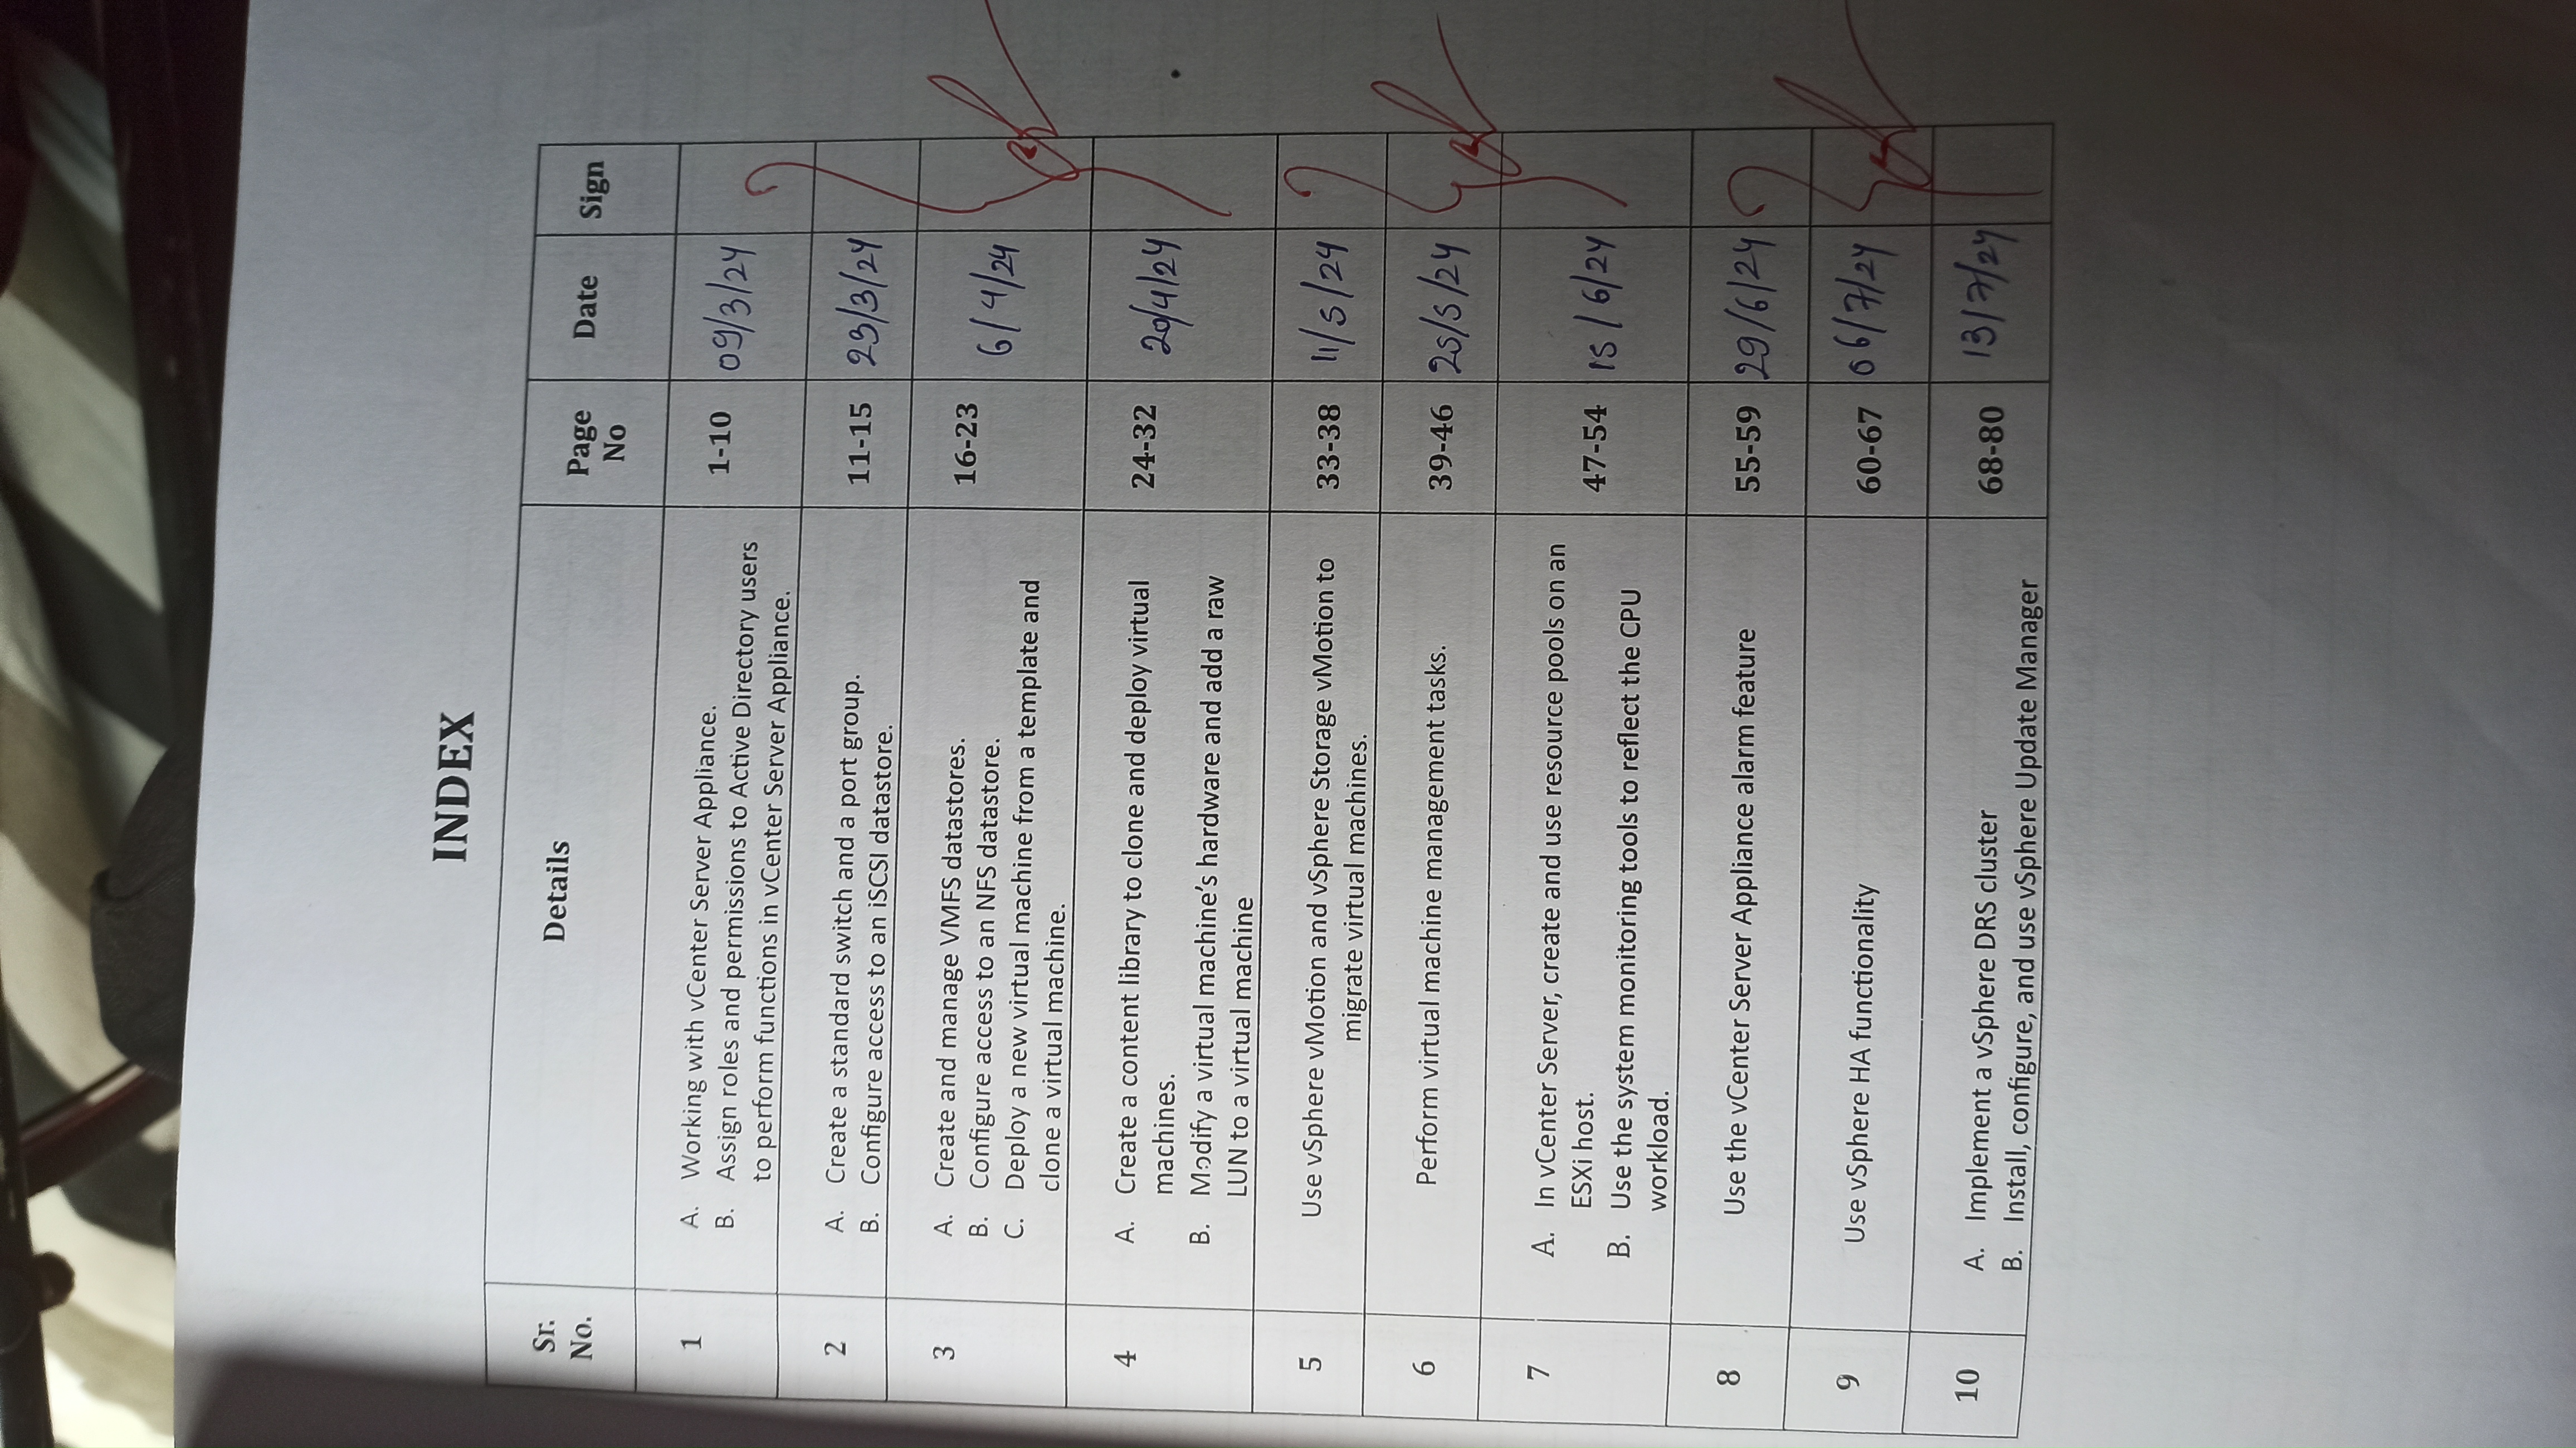 INDEX
Sr. No. Details Page No Date Sign
1 A. Working with vCenter Server Appliance. 1-10 09/3/24
B. Assign roles and permissions to Active Directory users
to perform functions in vCenter Server Appliance.
2 A. Create a standard switch and a port group. 11-15 23/3/24
B. Configure access to an iSCSI datastore.
3 A. Create and manage VMFS datastores. 16-23 6/4/24
B. Configure access to an NFS datastore.
C. Deploy a new virtual machine from a template and
clone a virtual machine.
4 A. Create a content library to clone and deploy virtual 24-32 20/4/24
machines.
B. Modify a virtual machine's hardware and add a raw
LUN to a virtual machine
5 Use vSphere vMotion and vSphere Storage vMotion to 33-38 11/5/24
migrate virtual machines.
6 Perform virtual machine management tasks. 39-46 25/5/24
7 A. In vCenter Server, create and use resource pools on an 47-54 15/6/24
ESXi host.
B. Use the system monitoring tools to reflect the CPU
workload.
8 Use the vCenter Server Appliance alarm feature 55-59 29/6/24
9 Use vSphere HA functionality 60-67 06/7/24
10 A. Implement a vSphere DRS cluster 68-80 13/7/24
B. Install, configure, and use vSphere Update Manager